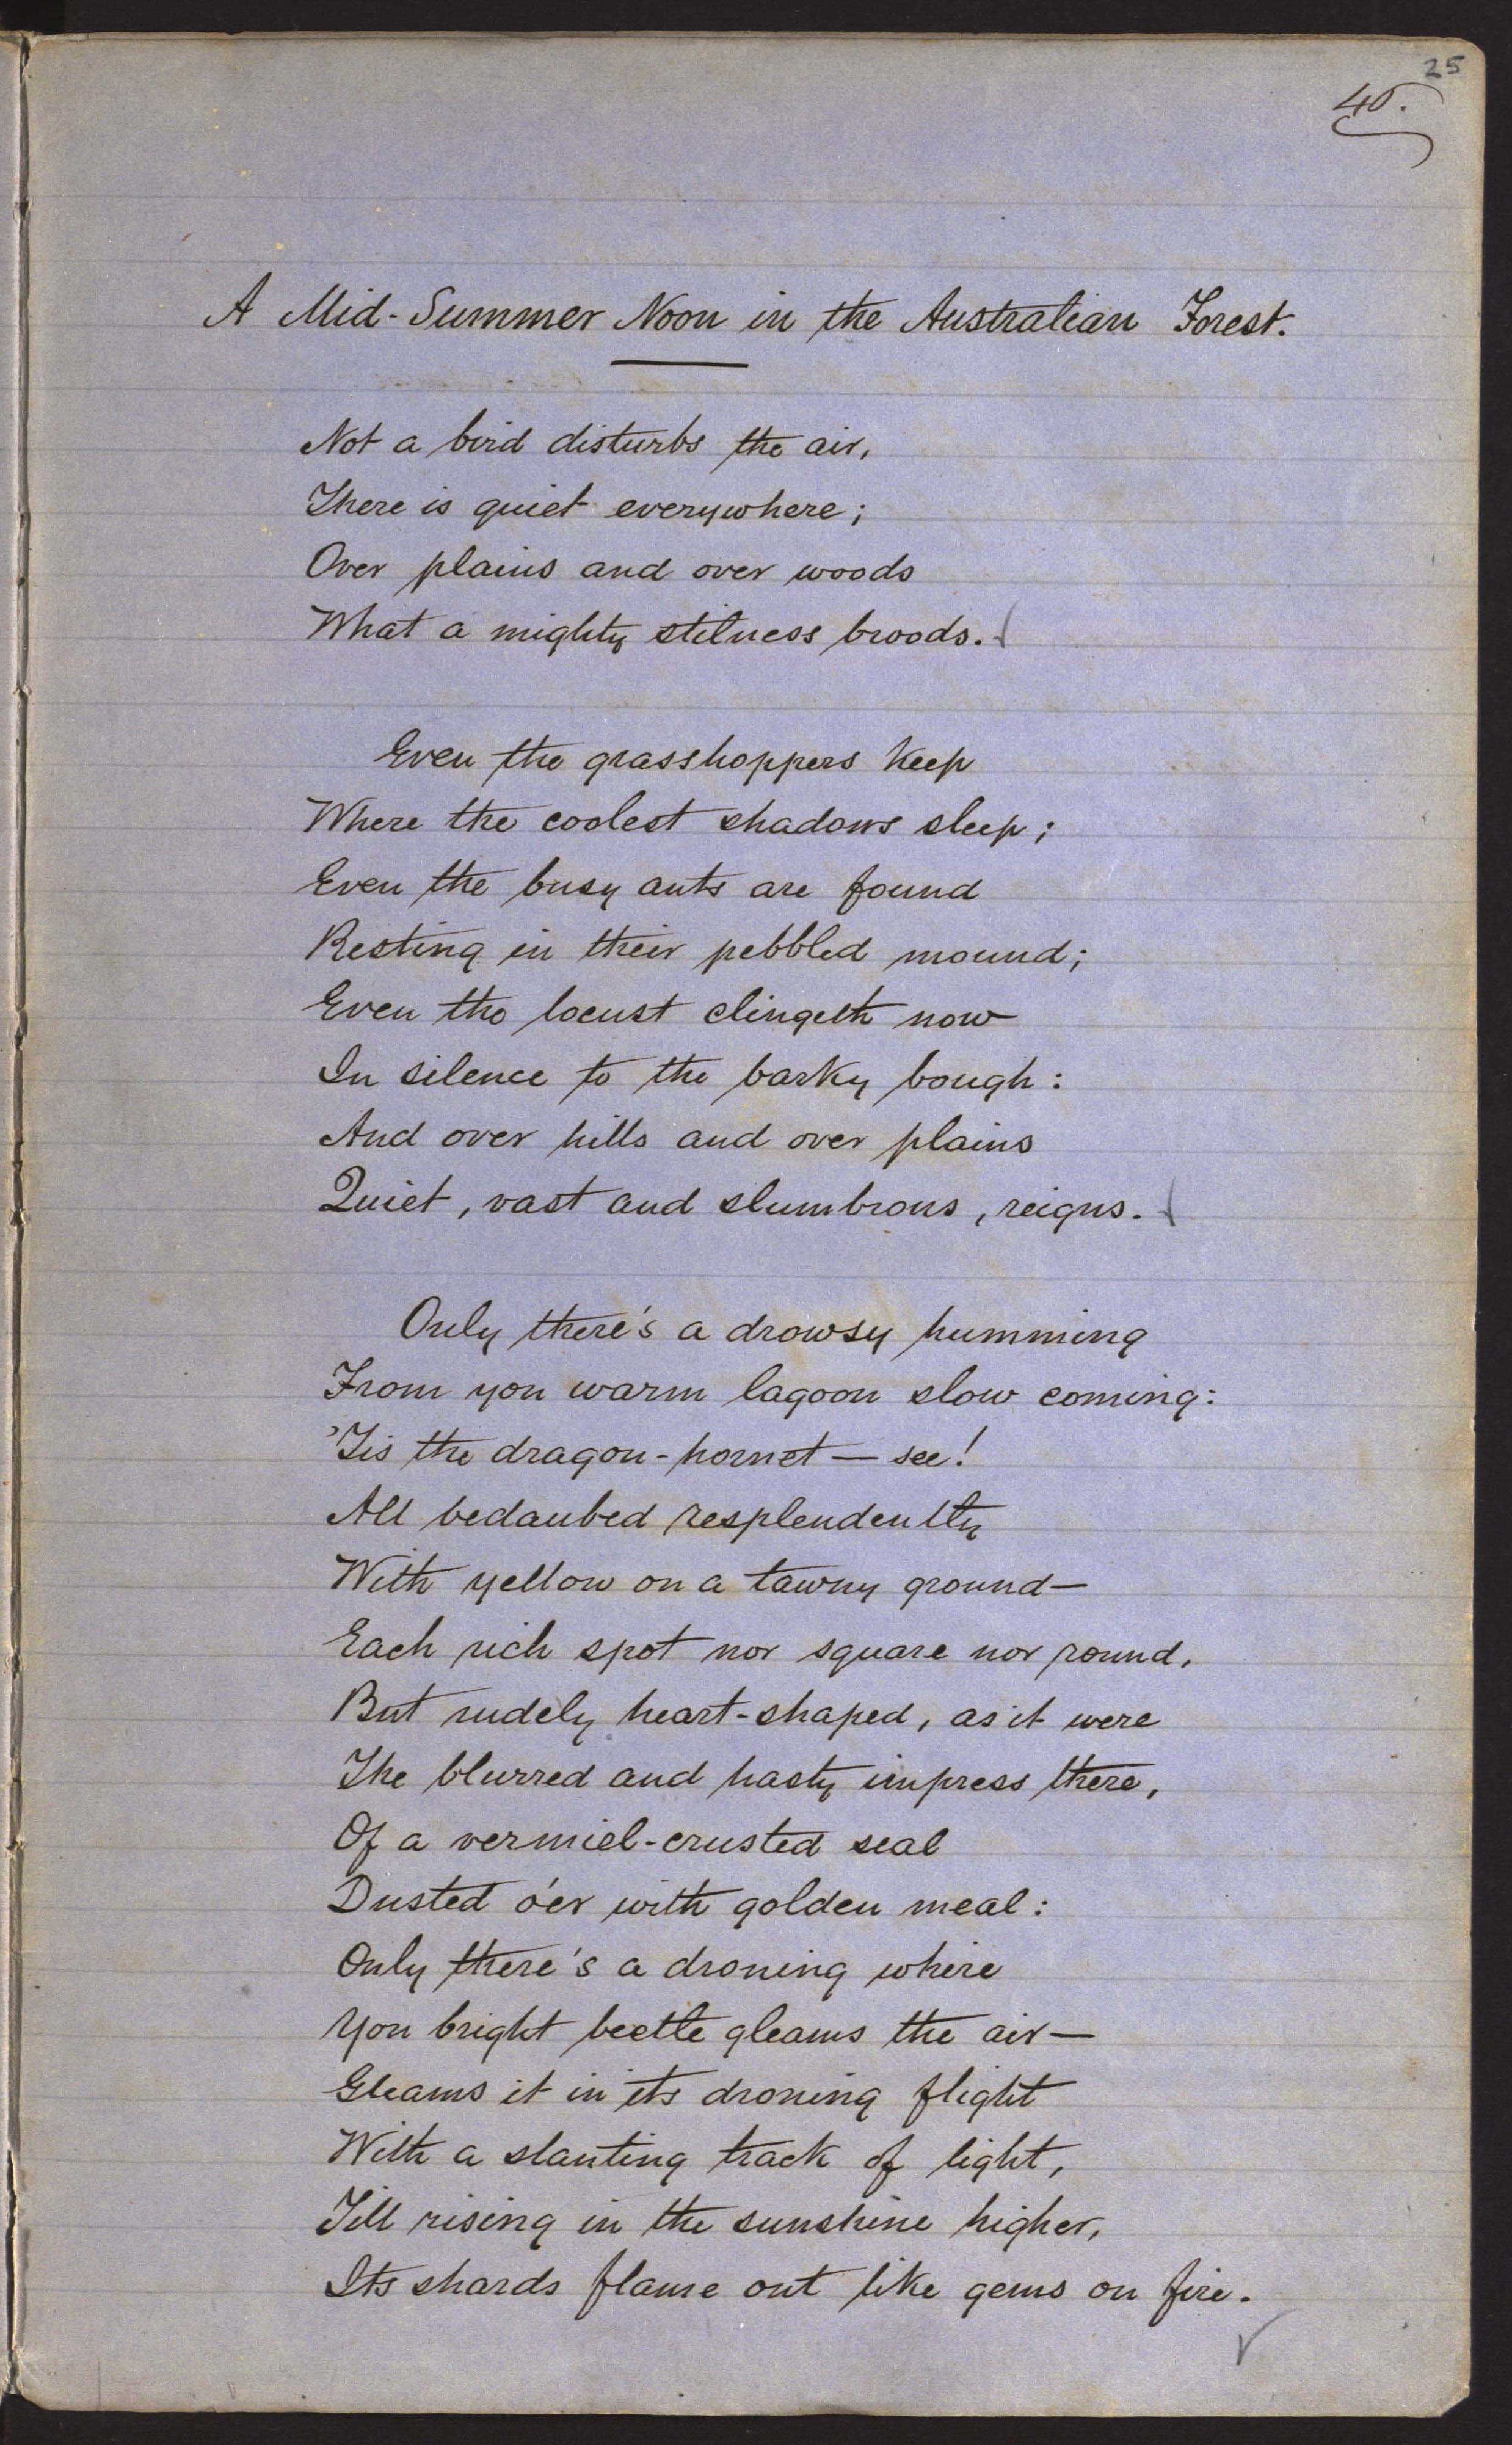 25
40.
A Mid-Summer Noon in the Australian Forest.
Not a bird disturbs the air,
There is quiet everywhere;
Over plains and over woods
What a mighty stilness broods.
Even the grasshoppers keep
Where the coolest shadows sleep;
Even the busy ants are found
Resting in their pebbled mound;
Even the locust clingeth now
In silence to the barky bough:
And over hills and over plains
Quiet, vast and slumbrous, reigns.
Only there's a drowsy humming
From yon warm lagoon slow coming:
'Tis the dragon-hornet — see!
All bedaubed resplendently
With yellow on a tawny ground—
Each rich spot nor square nor round,
But rudely heart-shaped, as it were
The blurred and hasty impress there,
Of a vermiel-crusted seal
Dusted o'er with golden meal:
Only there's a droning where
Yon bright beetle gleams the air—
Gleams it in its droning flight
With a slanting track of light,
Till rising in the sunshine higher,
Its shards flame out like gems on fire.